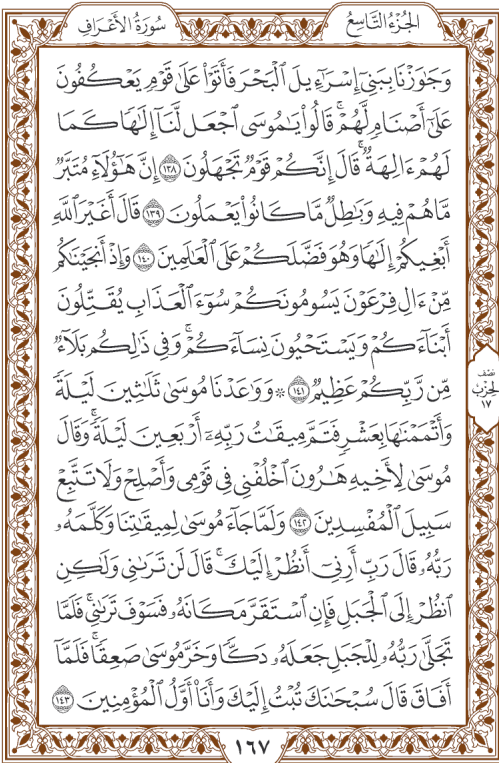 الجُزْءُ التَّاسِعُ
سُورَةُ الأَعْرَافِ
وَجَٰوَزْنَا بِبَنِىٓ إِسْرَٰٓءِيلَ ٱلْبَحْرَ فَأَتَوْا۟ عَلَىٰ قَوْمٍ يَعْكُفُونَ
عَلَىٰٓ أَصْنَامٍ لَّهُمْ ۚ قَالُوا۟ يَٰمُوسَى ٱجْعَل لَّنَآ إِلَٰهًا كَمَا
لَهُمْ ءَالِهَةٌ ۚ قَالَ إِنَّكُمْ قَوْمٌ تَجْهَلُونَ ١٣٨ إِنَّ هَٰٓؤُلَآءِ مُتَبَّرٌ
مَّا هُمْ فِيهِ وَبَٰطِلٌ مَّا كَانُوا۟ يَعْمَلُونَ ١٣٩ قَالَ أَغَيْرَ ٱللَّهِ
أَبْغِيكُمْ إِلَٰهًا وَهُوَ فَضَّلَكُمْ عَلَى ٱلْعَٰلَمِينَ ١٤٠ وَإِذْ أَنجَيْنَٰكُم
مِّنْ ءَالِ فِرْعَوْنَ يَسُومُونَكُمْ سُوٓءَ ٱلْعَذَابِ يُقَتِّلُونَ
أَبْنَآءَكُمْ وَيَسْتَحْيُونَ نِسَآءَكُمْ ۚ وَفِى ذَٰلِكُم بَلَآءٌ
مِّن رَّبِّكُمْ عَظِيمٌ ١٤١ ۞ وَوَٰعَدْنَا مُوسَىٰ ثَلَٰثِينَ لَيْلَةً
وَأَتْمَمْنَٰهَا بِعَشْرٍ فَتَمَّ مِيقَٰتُ رَبِّهِۦٓ أَرْبَعِينَ لَيْلَةً ۚ وَقَالَ
مُوسَىٰ لِأَخِيهِ هَٰرُونَ ٱخْلُفْنِى فِى قَوْمِى وَأَصْلِحْ وَلَا تَتَّبِعْ
سَبِيلَ ٱلْمُفْسِدِينَ ١٤٢ وَلَمَّا جَآءَ مُوسَىٰ لِمِيقَٰتِنَا وَكَلَّمَهُۥ
رَبُّهُۥ قَالَ رَبِّ أَرِنِىٓ أَنظُرْ إِلَيْكَ ۚ قَالَ لَن تَرَىٰنِى وَلَٰكِنِ
ٱنظُرْ إِلَى ٱلْجَبَلِ فَإِنِ ٱسْتَقَرَّ مَكَانَهُۥ فَسَوْفَ تَرَىٰنِى ۚ فَلَمَّا
تَجَلَّىٰ رَبُّهُۥ لِلْجَبَلِ جَعَلَهُۥ دَكًّا وَخَرَّ مُوسَىٰ صَعِقًا ۚ فَلَمَّآ
أَفَاقَ قَالَ سُبْحَٰنَكَ تُبْتُ إِلَيْكَ وَأَنَا۠ أَوَّلُ ٱلْمُؤْمِنِينَ ١٤٣
نصف
الحزب
١٧
١٦٧